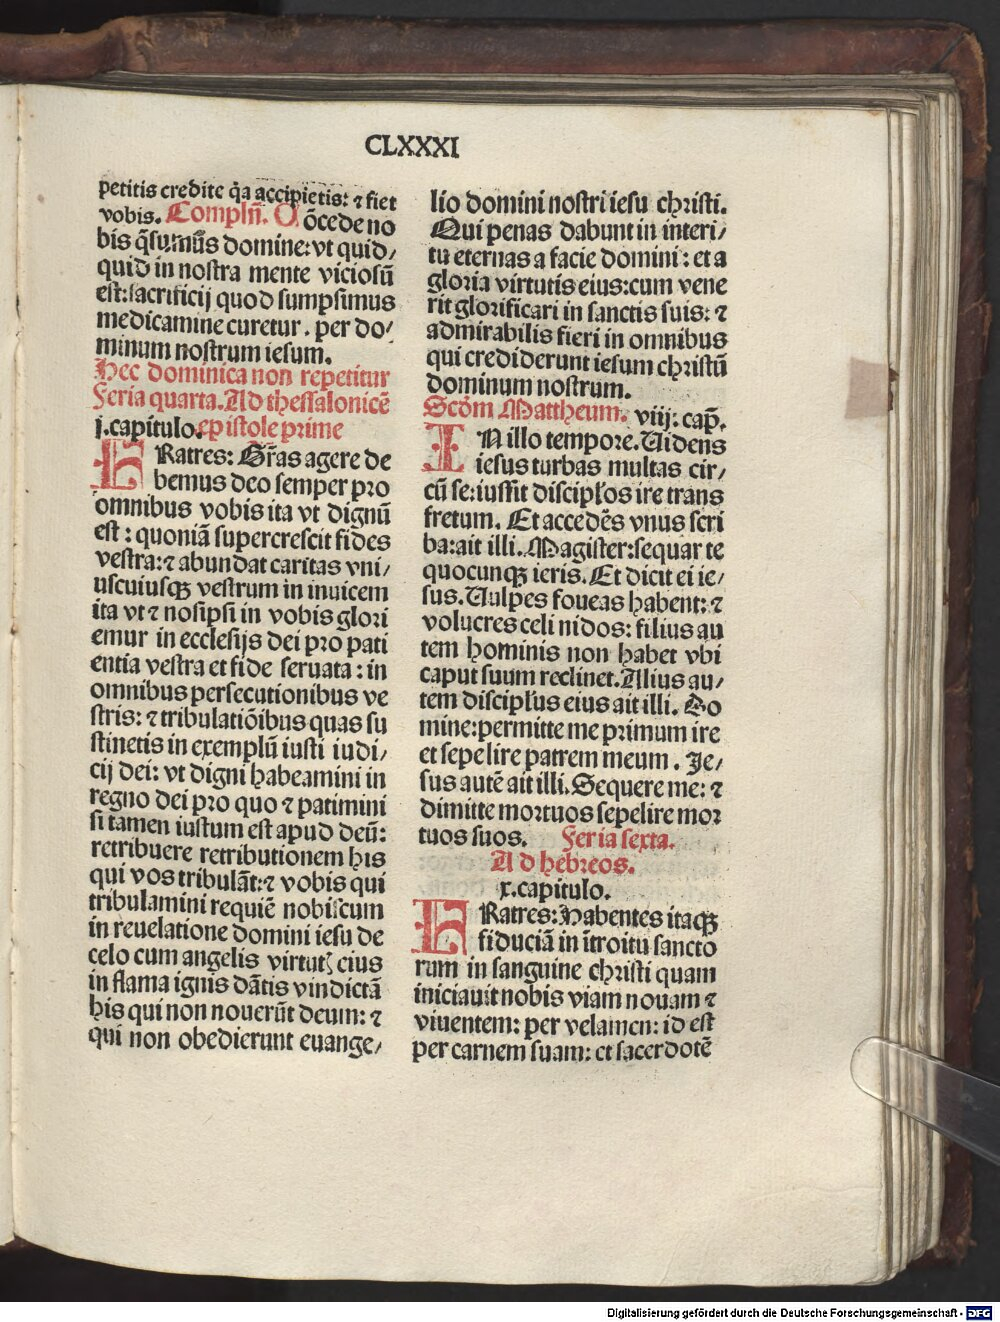 CLXXXI
petitis credite q̃a accipietis: ⁊ fiet
vobis. Complñ. Cõcede no
bis q̃sumus domine: vt quid/
quid in nostra mente viciosũ
est: sacrificij quod sumpsimus
medicamine curetur. per do/
minum nostrum iesum.
Hec dominica non repetitur
Feria quarta. Ad thessalonicẽ
j. capitulo. epistole prime
FRatres: Gr̃as agere de
bemus deo semper pro
omnibus vobis ita vt dignũ
est: quoniã supercrescit fides
vestra: ⁊ abundat caritas vni/
uscuiusqꝫ vestrum in inuicem
ita vt ⁊ nosipsi in vobis glori
emur in ecclesijs dei pro pati
entia vestra et fide seruata: in
omnibus persecutionibus ve
stris: ⁊ tribulatiõibus quas su
stinetis in exemplũ iusti iudi/
cij dei: vt digni habeamini in
regno dei pro quo ⁊ patimini
si tamen iustum est apud deũ:
retribuere retributionem his
qui vos tribulãt: ⁊ vobis qui
tribulamini requiẽ nobiscum
in reuelatione domini iesu de
celo cum angelis virtutꝭ eius
in flama ignis dãtis vindictã
his qui non nouerũt deum: ⁊
qui non obedierunt euange/
lio domini nostri iesu christi.
Qui penas dabunt in interi/
tu eternas a facie domini: et a
gloria virtutis eius: cum vene
rit glorificari in sanctis suis: ⁊
admirabilis fieri in omnibus
qui crediderunt iesum christũ
dominum nostrum.
Scðm Mattheum. viij: cap̃.
IN illo tempore. Uidens
iesus turbas multas cir/
cũ se: iussit discipl'os ire trans
fretum. Et accedẽs vnus scri
ba: ait illi. Magister: sequar te
quocunqꝫ ieris. Et dicit ei ie/
sus. Uulpes foueas habent: ⁊
volucres celi nidos: filius au
tem hominis non habet vbi
caput suum reclinet. Alius au/
tem discipl'us eius ait illi. Do
mine: permitte me primum ire
et sepelire patrem meum. Je/
sus autẽ ait illi. Sequere me: ⁊
dimitte mortuos sepelire mor
tuos suos. Feria sexta.
Ad hebreos.
x. capitulo.
FRatres: Habentes itaqꝫ
fiduciã in ĩtroitu sancto
rum in sanguine christi quam
iniciauit nobis viam nouam ⁊
viuentem: per velamen: id est
per carnem suam: et sacerdotẽ
Digitalisierung gefördert durch die Deutsche Forschungsgemeinschaft - DFG